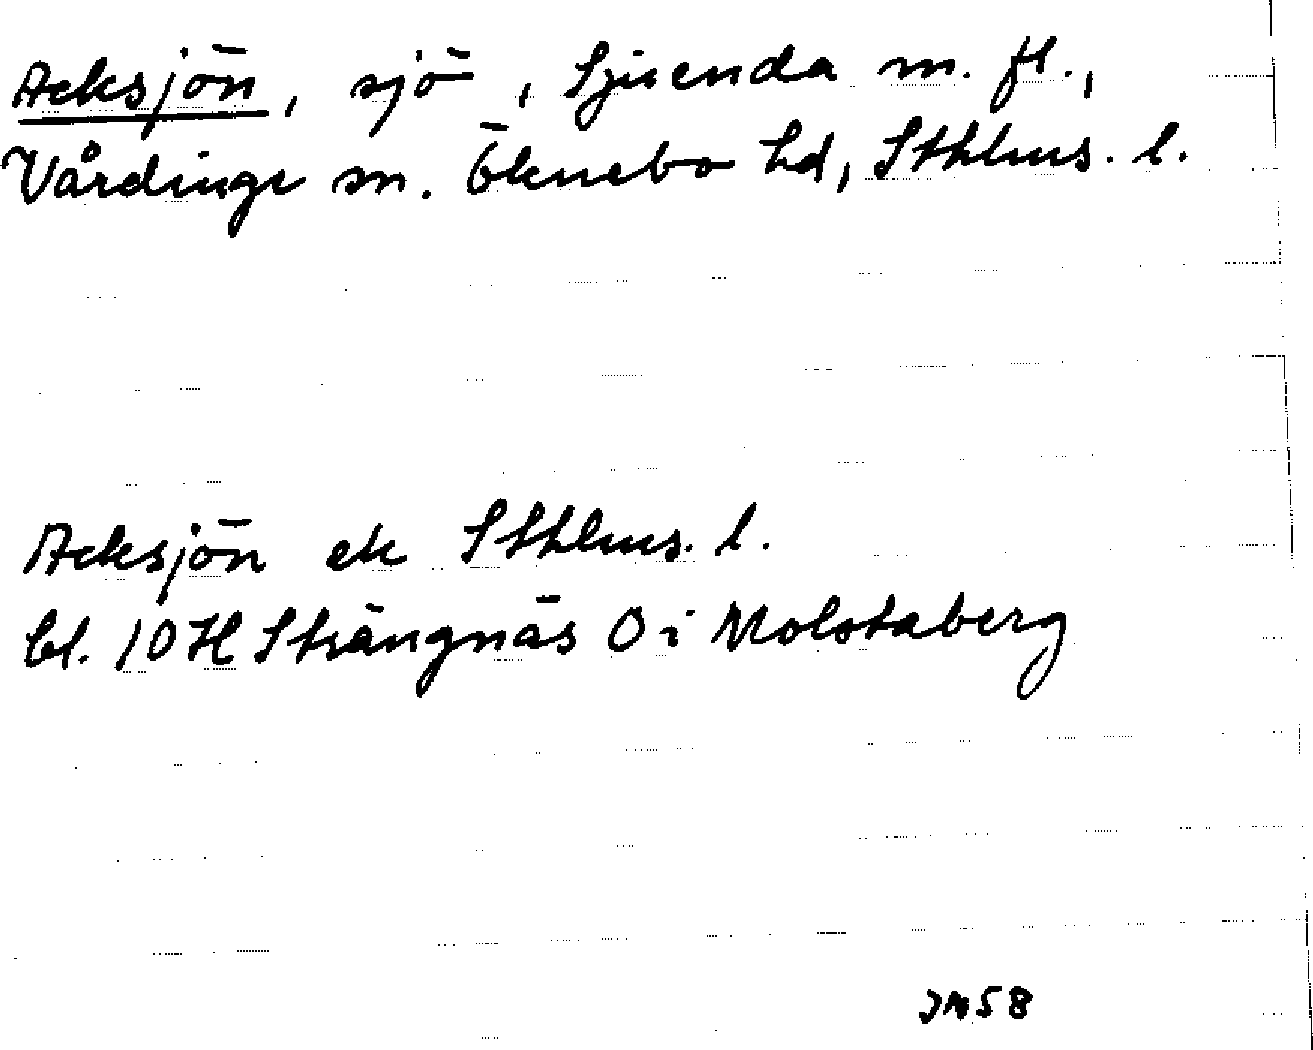 Acksjön, sjö, Ljusenda m. fl.,
Vårdinge sn. Öknebo hd, Sthlms. l.
Acksjön ek Sthlms. l.
bl. 10 H Strängnäs O i Molstaberg
58